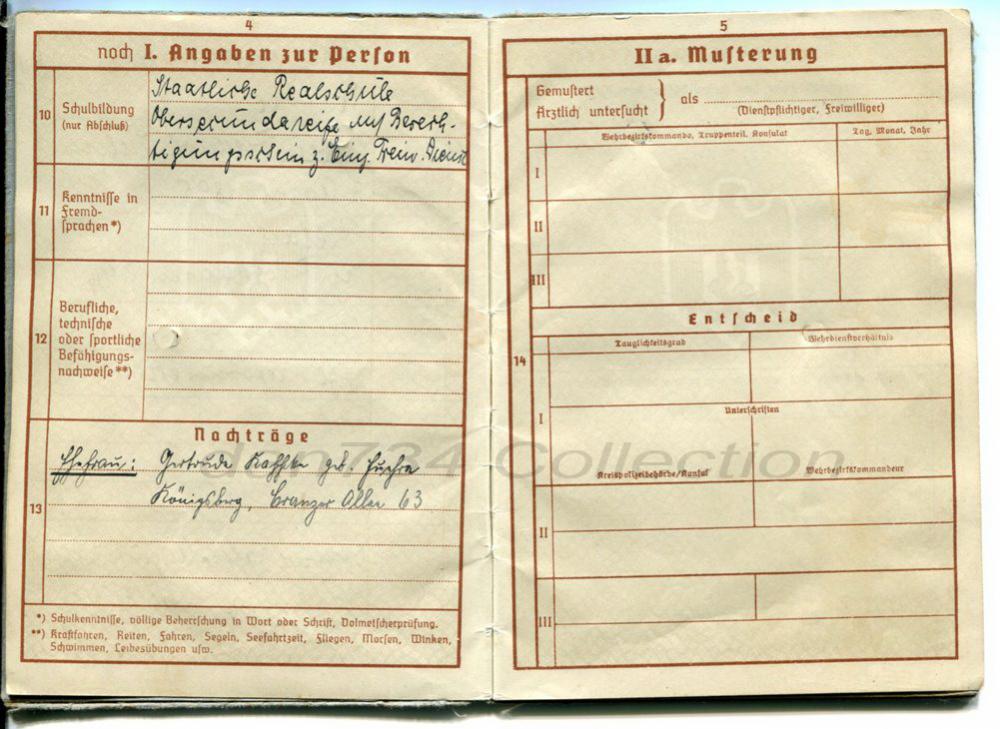 4
noch I. Angaben zur Person
10
Schulbildung
(nur Abschluß)
Staatliche Realschule
Obersekundareife mit Berech-
tigungsschein z. Einj. Freiw. Dienst
11
Kenntnisse in
Fremd-
sprachen *)
12
Berufliche,
technische
oder sportliche
Befähigungs-
nachweise **)
Nachträge
13
Ehefrau: Gertrude geb.
Königsberg, Cranzer Allee 63
*) Schulkenntnisse, völlige Beherrschung in Wort oder Schrift, Dolmetscherprüfung.
**) Kraftfahren, Reiten, Fahren, Segeln, Seefahrtzeit, Fliegen, Morsen, Winken,
Schwimmen, Leibesübungen usw.
5
II a. Musterung
Gemustert
Ärztlich untersucht } als
(Dienstpflichtiger, Freiwilliger)
Wehrbezirkskommando, Truppenteil, Konsulat
Tag, Monat, Jahr
I
II
III
Entscheid
14
Tauglichkeitsgrad
Wehrdienstverhältnis
I
Unterschriften
Kreispolizeibehörde/Konsul
Wehrbezirkskommandeur
II
III
dan734 Collection